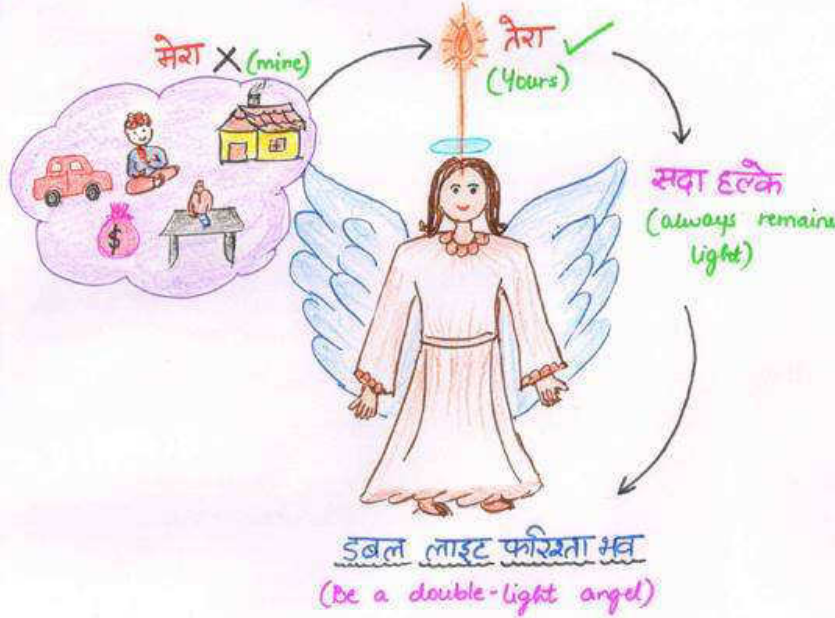 मेरा X (mine)
तेरा ✓
(Yours)
सदा हल्के
(always remaine
light)
$
डबल लाइट फरिश्ता भव
(Be a double-light angel)